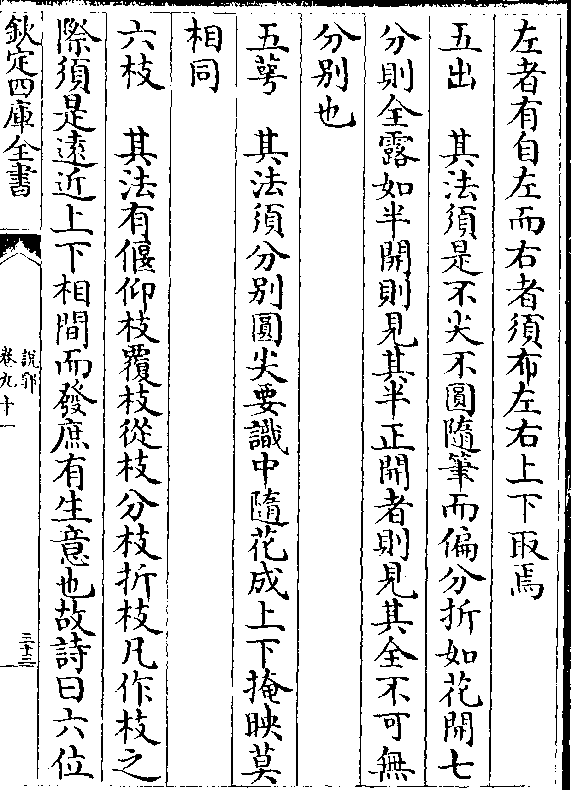 左者有自左而右者須布左右上下取焉
五出　其法須是不尖不圓隨筆而偏分折如花開七
分則全露如半開則見其半正開者則見其全不可無
分別也
五萼　其法須分別圓尖要識中隨花成上下掩映莫
相同
六枝　其法有偃仰枝覆枝從枝分枝折枝凡作枝之
際須是遠近上下相間而發庶有生意也故詩曰六位
欽定四庫全書
說郛
卷九十一
三十三